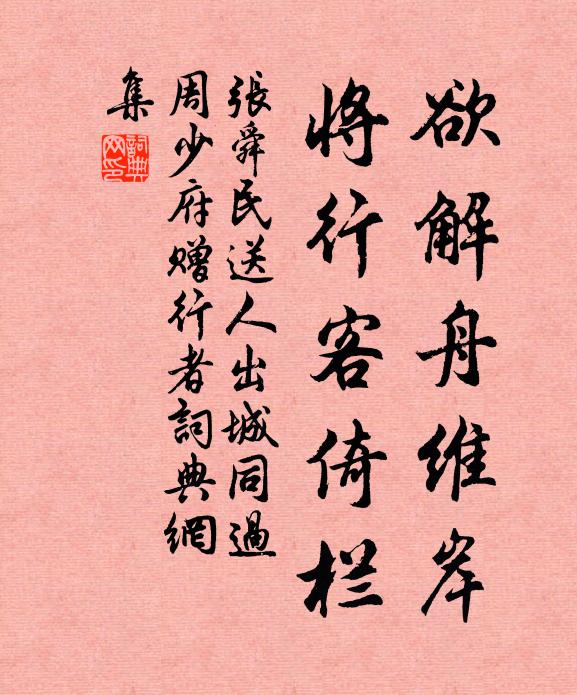 欲解舟维岸
将行客倚栏
張舜民送人出城同過
周少府赠行者詞典網
集
詞典
网印